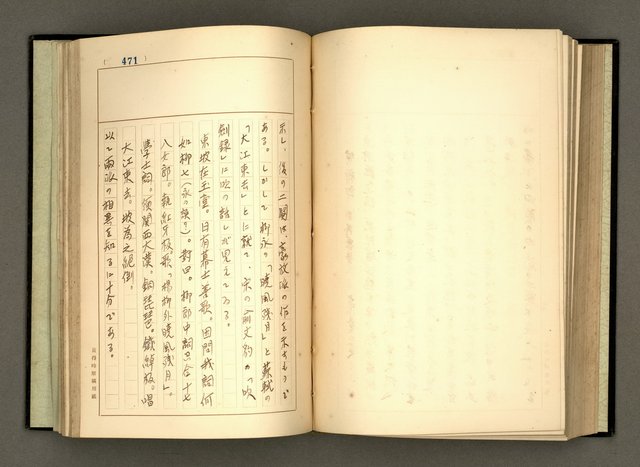 471
示し、後の二闋は、豪放派の作を示すものである。
ある。しかして柳永の「曉風殘月」と蘇軾の
「大江東去」とに就て、宋の俞文豹の「吹
劍錄」に次の話しが見えてゐる。
東坡在玉堂。日有幕士善歌。因問我詞何
如柳七(永の)。對曰。柳郎中詞只合十七
八女郎。執紅牙板、歌「楊柳外曉風殘月」。
學士詞。須關西大漢。銅琵琶。鐵綽板。唱
大江東去。坡為之絕倒。
以て兩派の相異を知るに十分である。